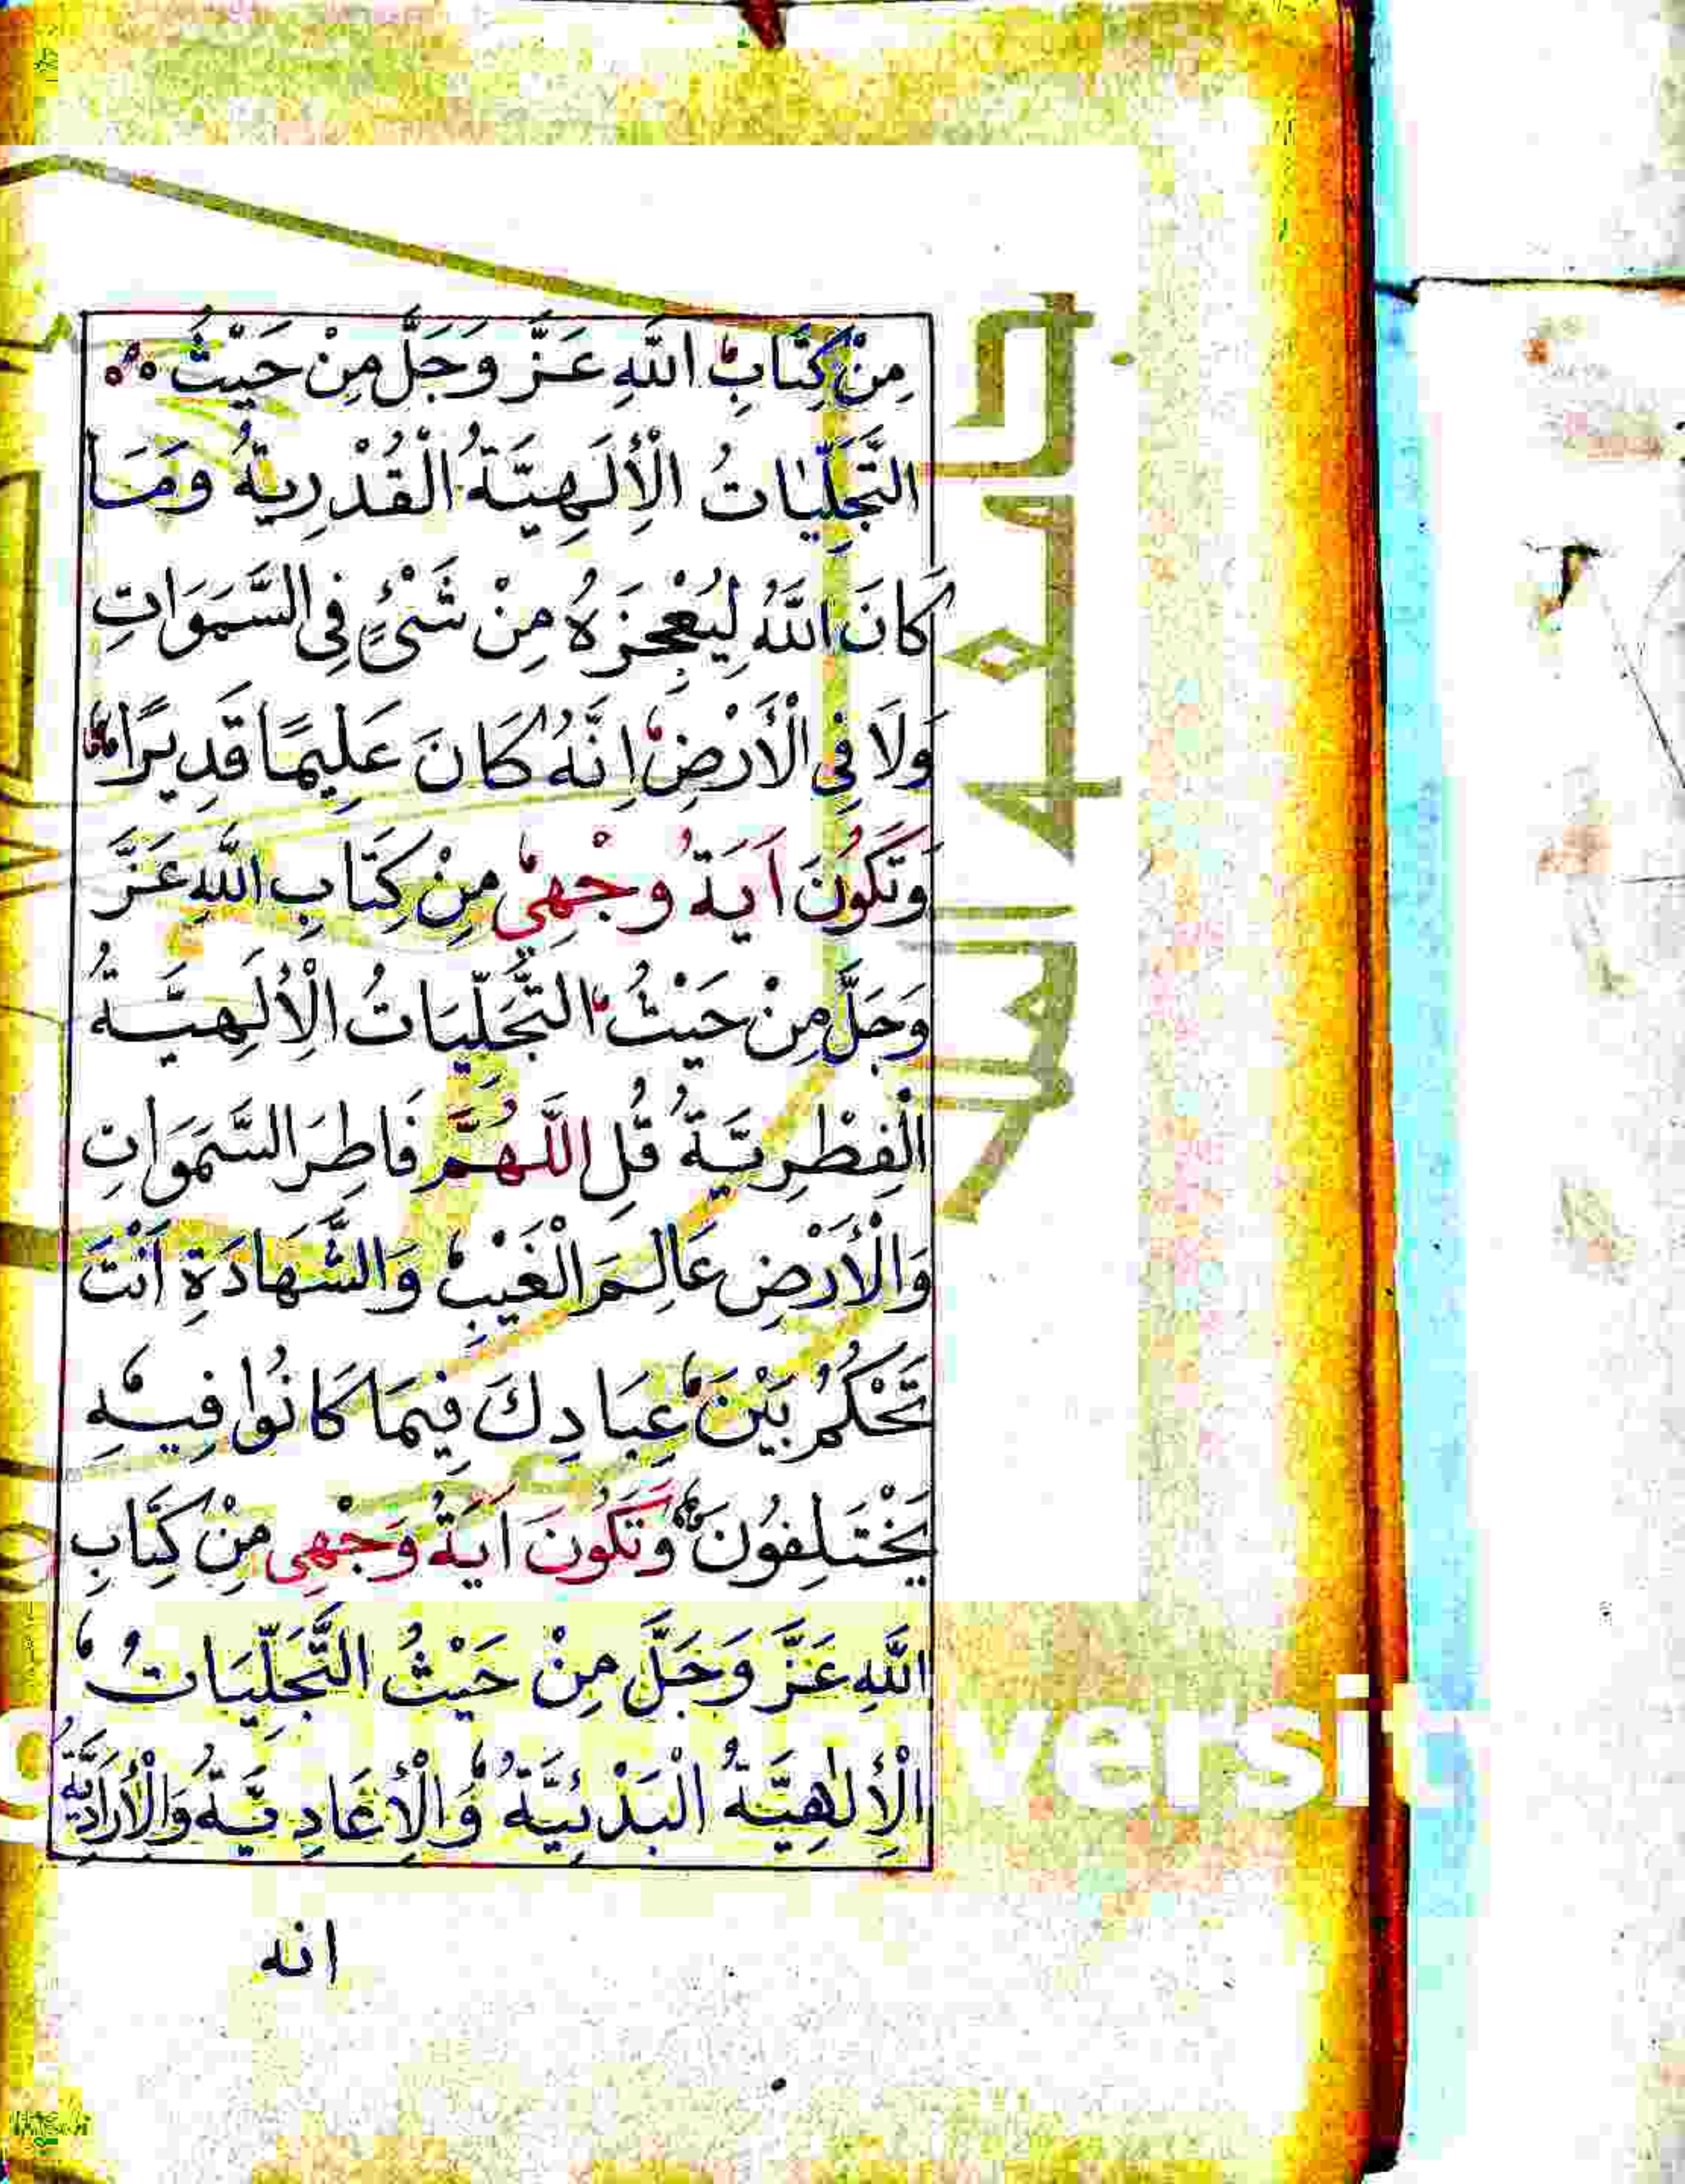 مِنْ كِتَابِ اللَّهِ عَزَّ وَجَلَّ مِنْ حَيْثُ
التَّجَلِّيَاتُ الْأِلَهِيَّةُ الْقُدْرِيةُ وَمَا
كَانَ اللَّهُ لِيُعْجِزَهُ مِنْ شَىْءٍ فِى السَّمَوَاتِ
وَلَا فِى الْأَرْضِ اِنَّهُ كَانَ عَلِيمًا قَدِيرًا
وَتَكُونَ اَيَةُ وَجْهِي مِنْ كِتَابِ اللَّهِ عَزَّ
وَجَلَّ مِنْ حَيْثُ التَّجَلِّيَاتُ الْاِلَهِيَّةُ
الْفِطْرِيَّةُ قُلِ اللَّهُمَّ فَاطِرَ السَّمَوَاتِ
وَالْأَرْضِ عَالِمَ الْغَيْبِ وَالشَّهَادَةِ اَنْتَ
تَحْكُمُ بَيْنَ عِبَادِكَ فِيمَا كَانُوا فِيهِ
يَخْتَلِفُونَ وَتَكُونَ اَيَةُ وَجْهِى مِنْ كِتَابِ
اللَّهِ عَزَّ وَجَلَّ مِنْ حَيْثُ التَّجَلِّيَاتُ
الْأِلٰهِيَّةُ الْبَدْئِيَّةُ وَالْأِعَادِيَّةُ وَالْأِرَادِيَّةُ
انه
versity